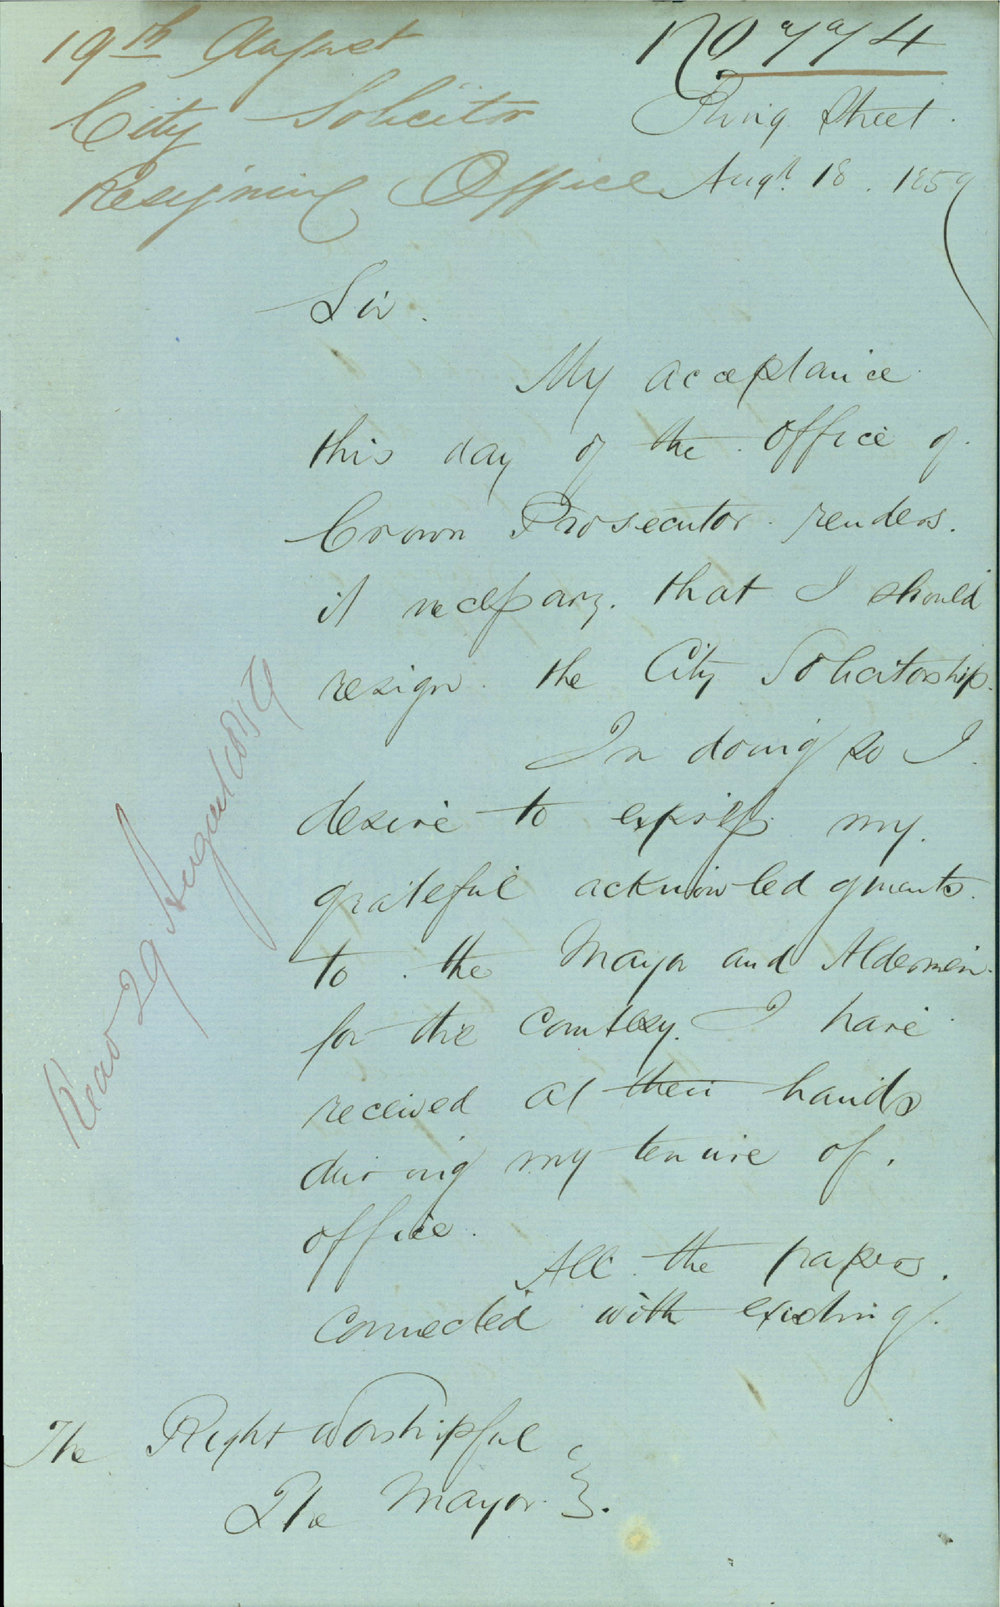 19th August
City Solicitor
Resigning Office
No 774
King Street.
Augt 18. 1859
Sir.
My acceptance
this day of the office of
Crown Prosecutor renders
it necessary that I should
resign the City Solicitorship.
In doing so I
desire to express my
grateful acknowledgments
to the Mayor and Aldermen
for the courtesy I have
received at their hands
during my tenure of
office.
All the papers
connected with existing
Read 29 August 1859
The Right Worshipful
The Mayor.